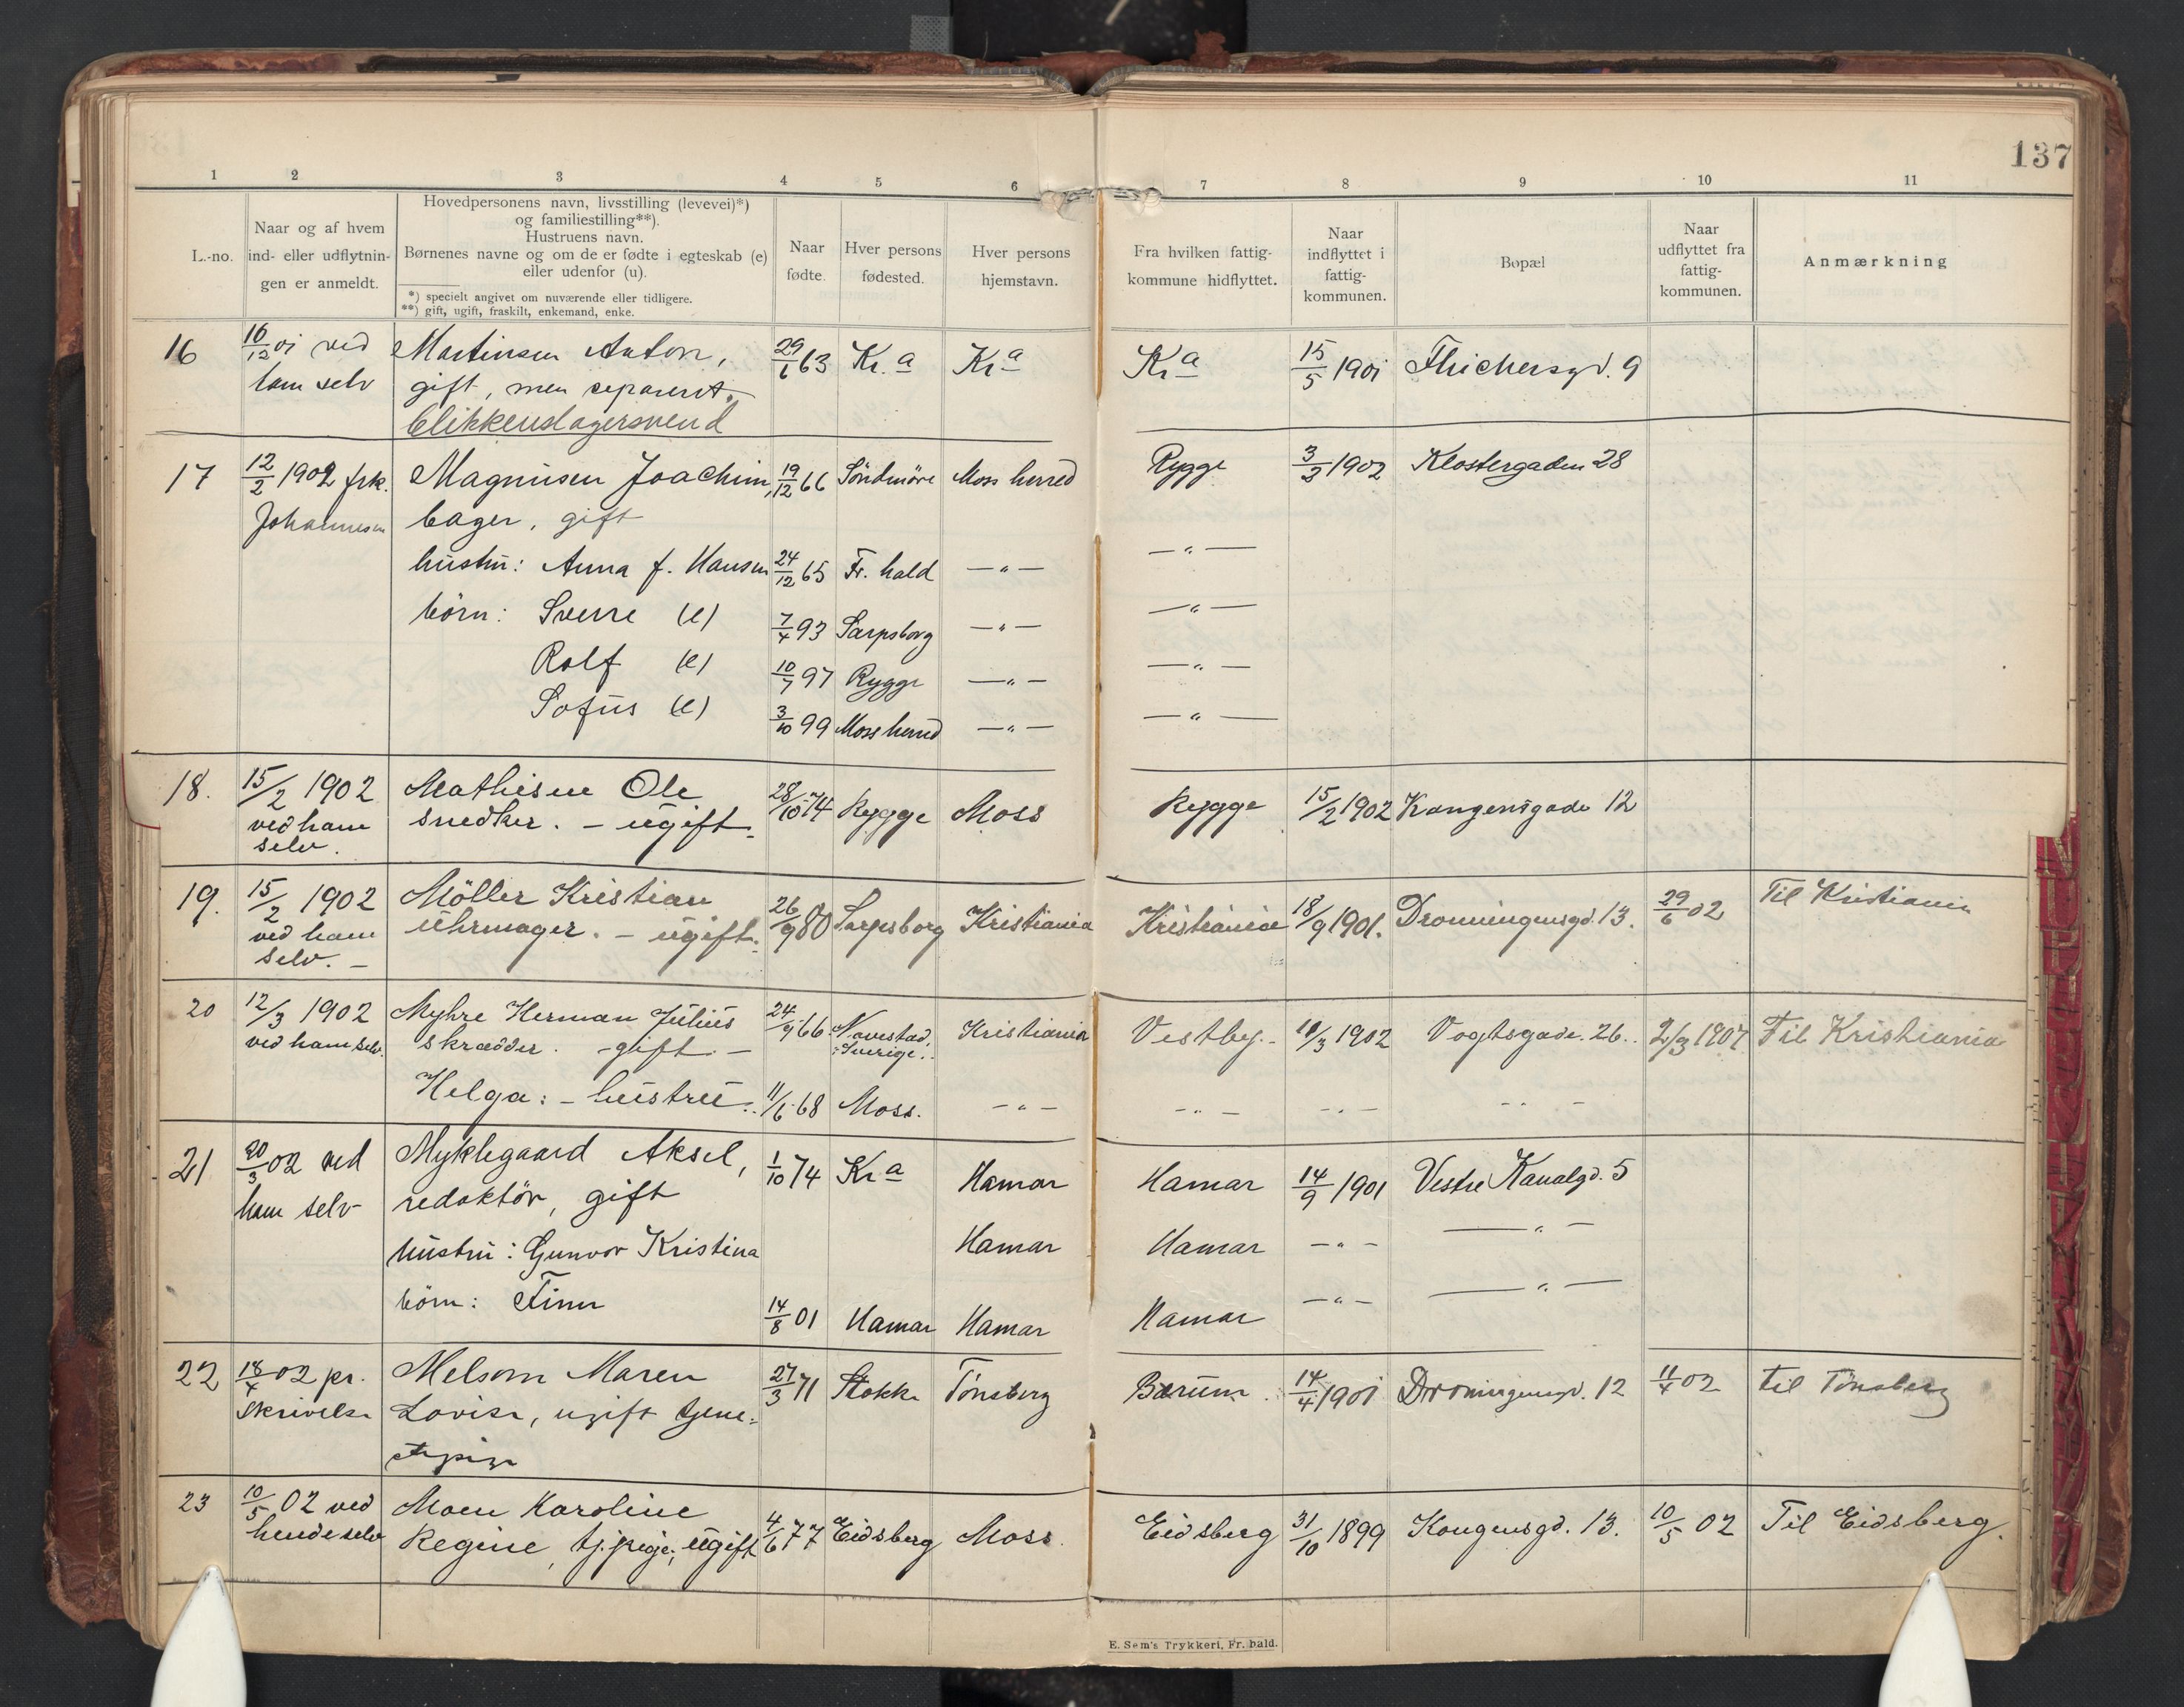 137
1 2 3 4 5 6 7 8 9 10 11
L.-no.
Naar og af hvem
ind- eller udflytnin-
gen er anmeldt.
Hovedpersonens navn, livsstilling (levevei)*)
og familiestilling**).
Hustruens navn.
Børnenes navne og om de er fødte i egteskab (e)
eller udenfor (u).
*) specielt angivet om nuværende eller tidligere.
**) gift, ugift, fraskilt, enkemand, enke.
Naar
fødte.
Hver persons
fødested.
Hver persons
hjemstavn.
Fra hvilken fattig-
kommune hidflyttet.
Naar
indflyttet i
fattig-
kommunen.
Bopæl
Naar
udflyttet fra
fattig-
kommunen.
Anmærkning
16 16/12 01 ved Martinsen Anton, 29/6 63 Kr.a Kra Kra 15/5 1901 9
ham selv gift, men separeret.
blikkenslagersvend
17 12/2 1902 frk. Magnusen Joachim, 19/12 66 Söndmöre Moss herred Rygge 3/2 1902 Klostergaden 28
Johannesen bager, gift
hustru: Anna f. Hansen 24/12 65 Fr. hald —"— —"—
börn: Sverre (e) 7/4 93 Sarpsborg —"— —"—
Rolf (e) 10/7 97 Rygge —"— —"—
Sofus (e) 3/10 99 Moss herred —"— —"—
18. 15/2 1902 Mathisen Ole 28/10 74 Rygge Moss Rygge 15/2 1902 Kongensgade 12
ved ham snedker. - ugift.
selv.
19. 15/2 1902 Möller Kristian 26/9 80 Sarpsborg Kristiania Kristiania 18/9 1901. Dronningensgd. 13. 29/6 02 Til Kristiania
ved ham Uhrmager. - ugift.
selv. -
20 12/3 1902 Myhre Herman Julius 24/9 66. Navestad. Kristiania Vestby. - 10/3 1902 Vogtsgade. 26. 2/3 1907 Til Kristiania
ved ham selv. skrædder. - gift. - Sverige.
Helga: - hustru. 11/6 68 Moss. -"- -"- -"- -"-
21 20/3 02 ved Myklegaard Aksel, 1/10 74 Kra Hamar Hamar 14/9 1901 Vestre Kanalgd. 5
ham selv redaktör, gift
hustru: Gunvor Kristina Hamar Hamar —"— —"—
börn: Finn 14/8 01 Hamar Hamar Hamar —"— —"—
22 18/4 02 pr. Melsom Maren 27/3 71 Stokke Tönsberg Bærum. 14/4 1901 Droningensgd. 12 11/4 02 til Tönsberg
skrivelse Lovise, ugift tjene-
stepige
23 10/5 02 ved Moen Karoline 4/6 77 Eidsberg Moss. Eidsberg 31/10 1899 Kongensgd. 13. 10/5 02 Til Eidsberg.
hende selv Regine, tj.pige, ugift
E. Sem's Trykkeri, Fr. hald.